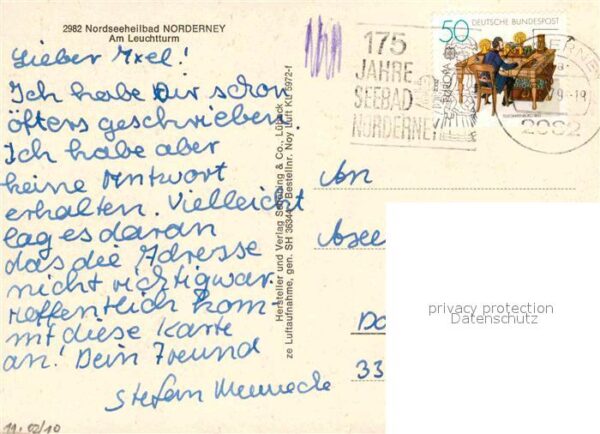 2982 Nordseeheilbad NORDERNEY
Am Leuchtturm
Lieber Axel!
Ich habe Dir schon
öfters geschrieben.
Ich habe aber
keine Antwort
erhalten. Vielleicht
lag es daran
das die Adresse
nicht richtig war.
Hoffentlich kom
mt diese Karte
an! Dein Freund
Stefan
11.02/10
Hersteller und Verlag Schöning & Co., Lübeck
ze Luftaufnahme, gen. SH 36344 Bestellnr. Noy Luft KL 5972-f
50 DEUTSCHE BUNDESPOST
175
JAHRE
SEEBAD
NORDERNEY
2982
An
Axel
Do
33
privacy protection
Datenschutz